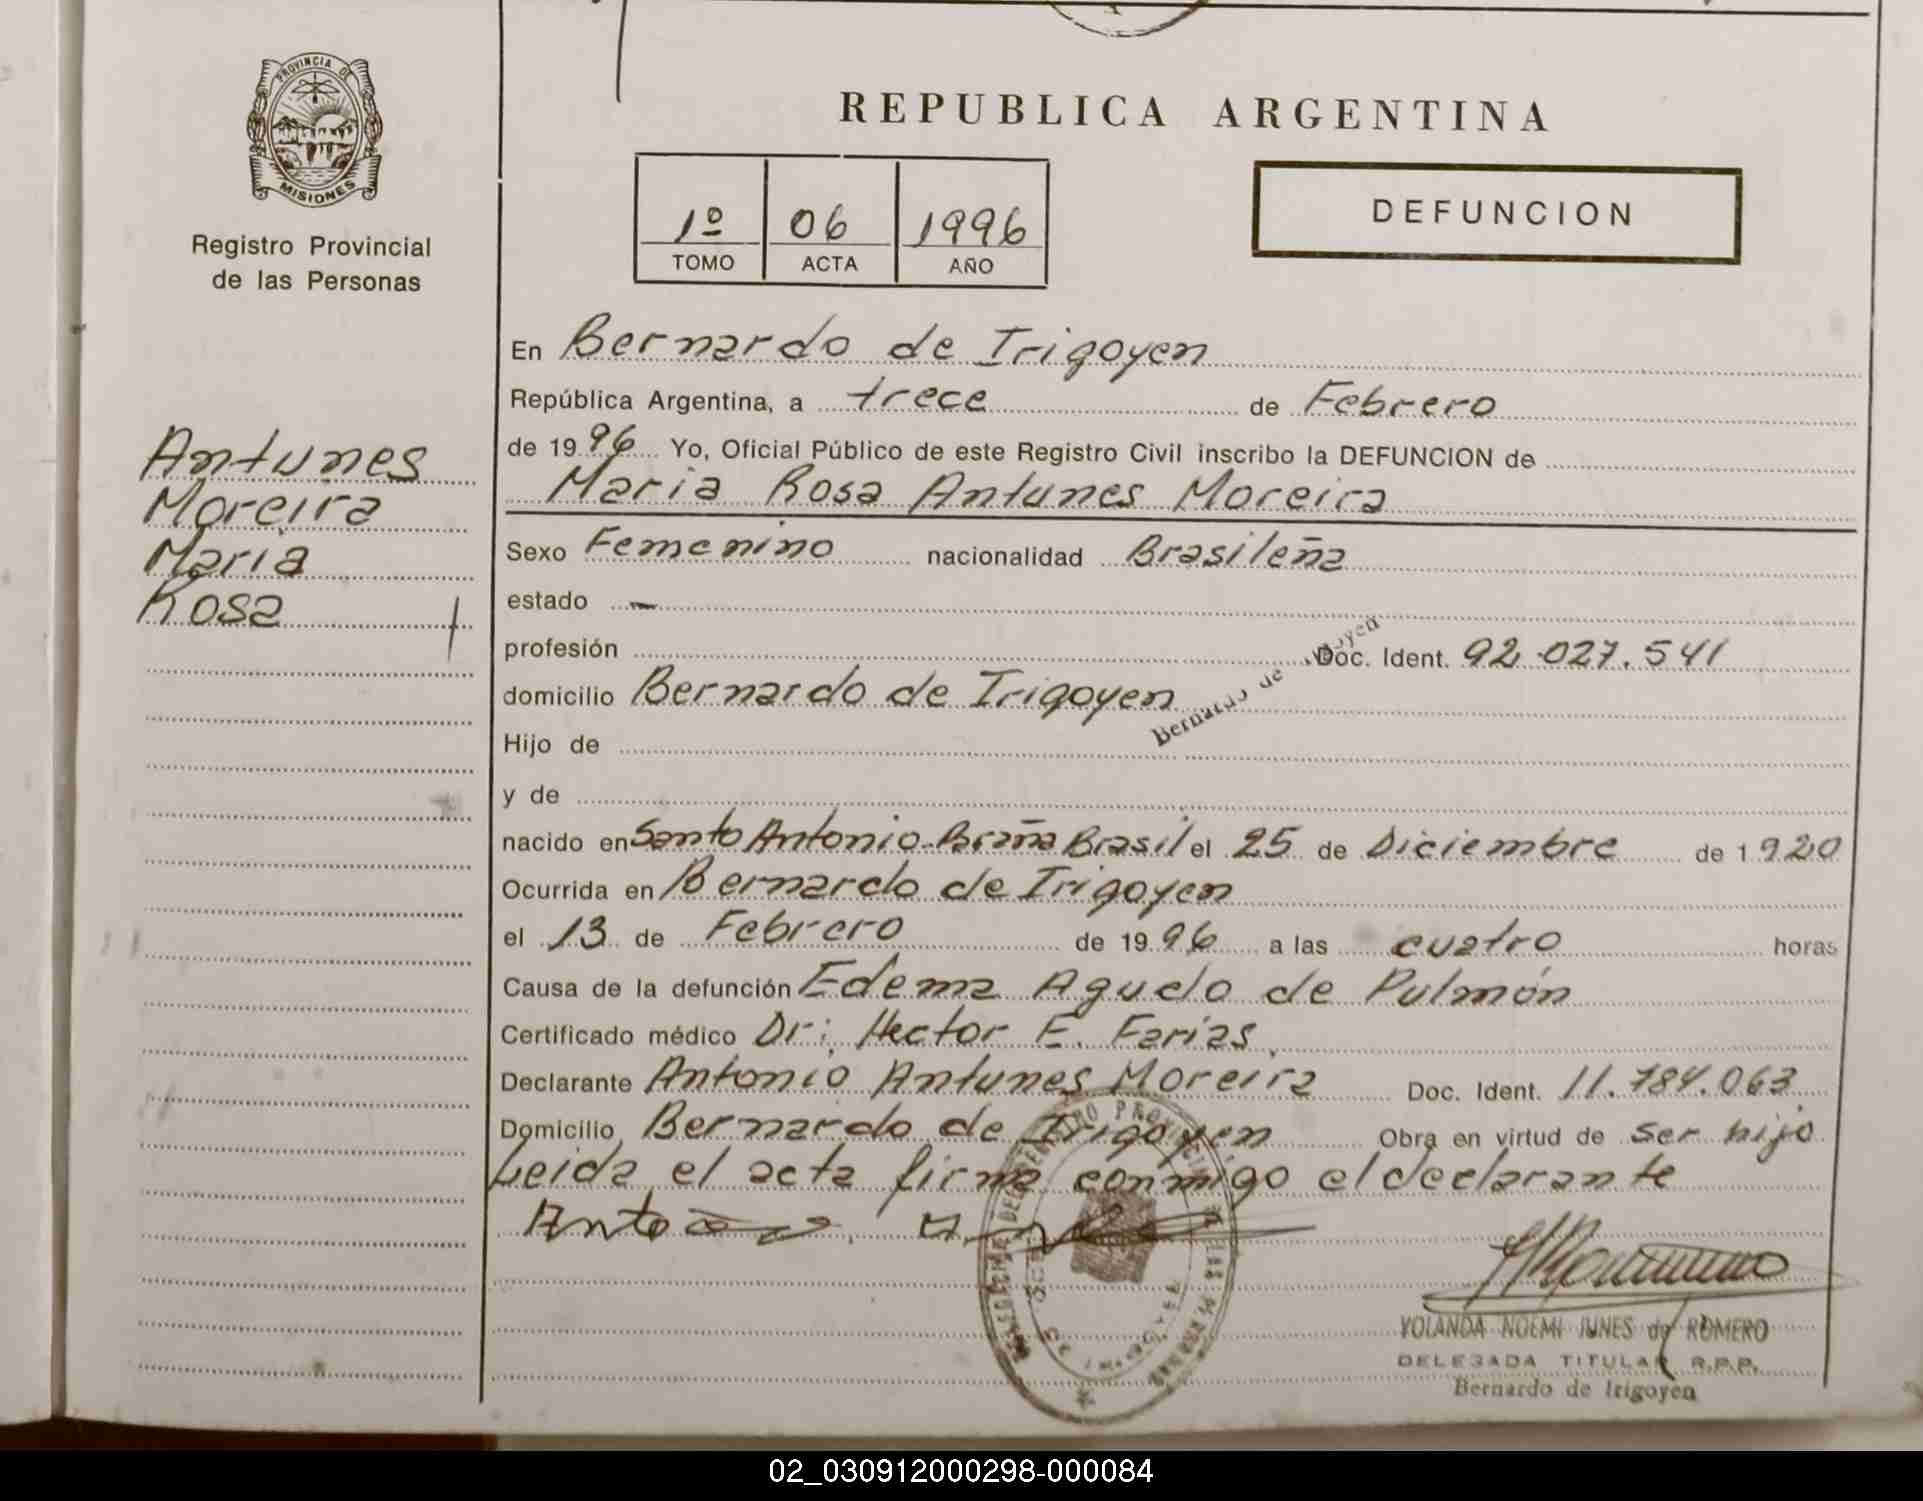 PROVINCIA DE
MISIONES
Registro Provincial
de las Personas
Antunes
Moreira
Maria
Rosa
REPUBLICA ARGENTINA
1º 06 1996
TOMO ACTA AÑO
DEFUNCION
En Bernardo de Irigoyen
República Argentina, a trece de Febrero
de 1996 Yo, Oficial Público de este Registro Civil inscribo la DEFUNCION de
Maria Rosa Antunes Moreira
Sexo Femenino nacionalidad Brasileña
estado —
profesión Doc. Ident. 92.027.541
domicilio Bernardo de Irigoyen
Bernardo de Irigoyen
Hijo de
y de
nacido en Santo Antonio-Praña Brasil el 25 de Diciembre de 1920
Ocurrida en Bernardo de Irigoyen
el 13 de Febrero de 1996 a las cuatro horas
Causa de la defunción Edema Agudo de Pulmón
Certificado médico Dr: Hector E. Farias
Declarante Antonio Antunes Moreira Doc. Ident. 11.784.063
Domicilio Bernardo de Irigoyen Obra en virtud de ser hijo
Leida el acta firma conmigo el declarante
YOLANDA NOEMI JUNES de ROMERO
DELEGADA TITULAR R.P.P.
Bernardo de Irigoyen
02_030912000298-000084